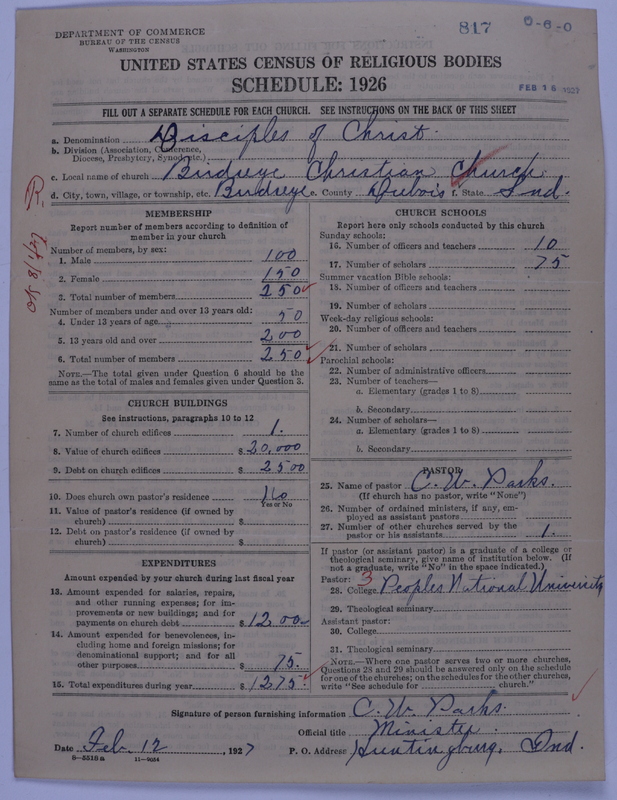 DEPARTMENT OF COMMERCE
BUREAU OF THE CENSUS
WASHINGTON
817
0-6-0
UNITED STATES CENSUS OF RELIGIOUS BODIES
SCHEDULE: 1926
FEB 16 1927
FILL OUT A SEPARATE SCHEDULE FOR EACH CHURCH. SEE INSTRUCTIONS ON THE BACK OF THIS SHEET
a. Denomination Disciples of Christ.
b. Division (Association, Conference,
Diocese, Presbytery, Synod, etc.)
c. Local name of church Birdseye Christian Church
d. City, town, village, or township, etc. Birdseye e. County Dubois f. State Ind.
MEMBERSHIP
Report number of members according to definition of
member in your church
Number of members, by sex:
1. Male 100
2. Female 150
3. Total number of members 250
Number of members under and over 13 years old:
4. Under 13 years of age 50
5. 13 years old and over 200
6. Total number of members 250
NOTE.—The total given under Question 6 should be the
same as the total of males and females given under Question 3.
CHURCH BUILDINGS
See instructions, paragraphs 10 to 12
7. Number of church edifices 1.
8. Value of church edifices $ 20,000
9. Debt on church edifices $ 2500
10. Does church own pastor's residence No
Yes or No
11. Value of pastor's residence (if owned by
church) $
12. Debt on pastor's residence (if owned by
church) $
EXPENDITURES
Amount expended by your church during last fiscal year
13. Amount expended for salaries, repairs,
and other running expenses; for im-
provements or new buildings; and for
payments on church debt $ 1200
14. Amount expended for benevolences, in-
cluding home and foreign missions; for
denominational support; and for all
other purposes $ 75.
15. Total expenditures during year $ 1275.
CHURCH SCHOOLS
Report here only schools conducted by this church
Sunday schools:
16. Number of officers and teachers 10
17. Number of scholars 75
Summer vacation Bible schools:
18. Number of officers and teachers
19. Number of scholars
Week-day religious schools:
20. Number of officers and teachers
21. Number of scholars
Parochial schools:
22. Number of administrative officers
23. Number of teachers—
a. Elementary (grades 1 to 8)
b. Secondary
24. Number of scholars—
a. Elementary (grades 1 to 8)
b. Secondary
PASTOR
25. Name of pastor C. W. Parks.
(If church has no pastor, write "None")
26. Number of ordained ministers, if any, em-
ployed as assistant pastors
27. Number of other churches served by the
pastor or his assistants 1.
If pastor (or assistant pastor) is a graduate of a college or
theological seminary, give name of institution below. (If
not a graduate, write "No" in the space indicated.)
Pastor: 3
28. College Peoples National University
29. Theological seminary
Assistant pastor:
30. College
31. Theological seminary
NOTE.—Where one pastor serves two or more churches,
Questions 28 and 29 should be answered only on the schedule
for one of the churches; on the schedules for the other churches,
write "See schedule for church."
Signature of person furnishing information C. W. Parks.
Official title Minister.
Date Feb. 12, 1927 P. O. Address Huntingburg, Ind.
8—5518a 11—9054